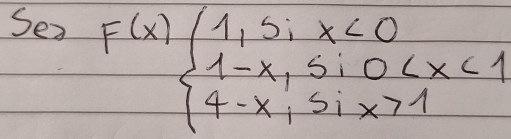 Sea F(x) { 1, Si x < 0
1-x, Si 0 < x < 1
4-x, Si x > 1